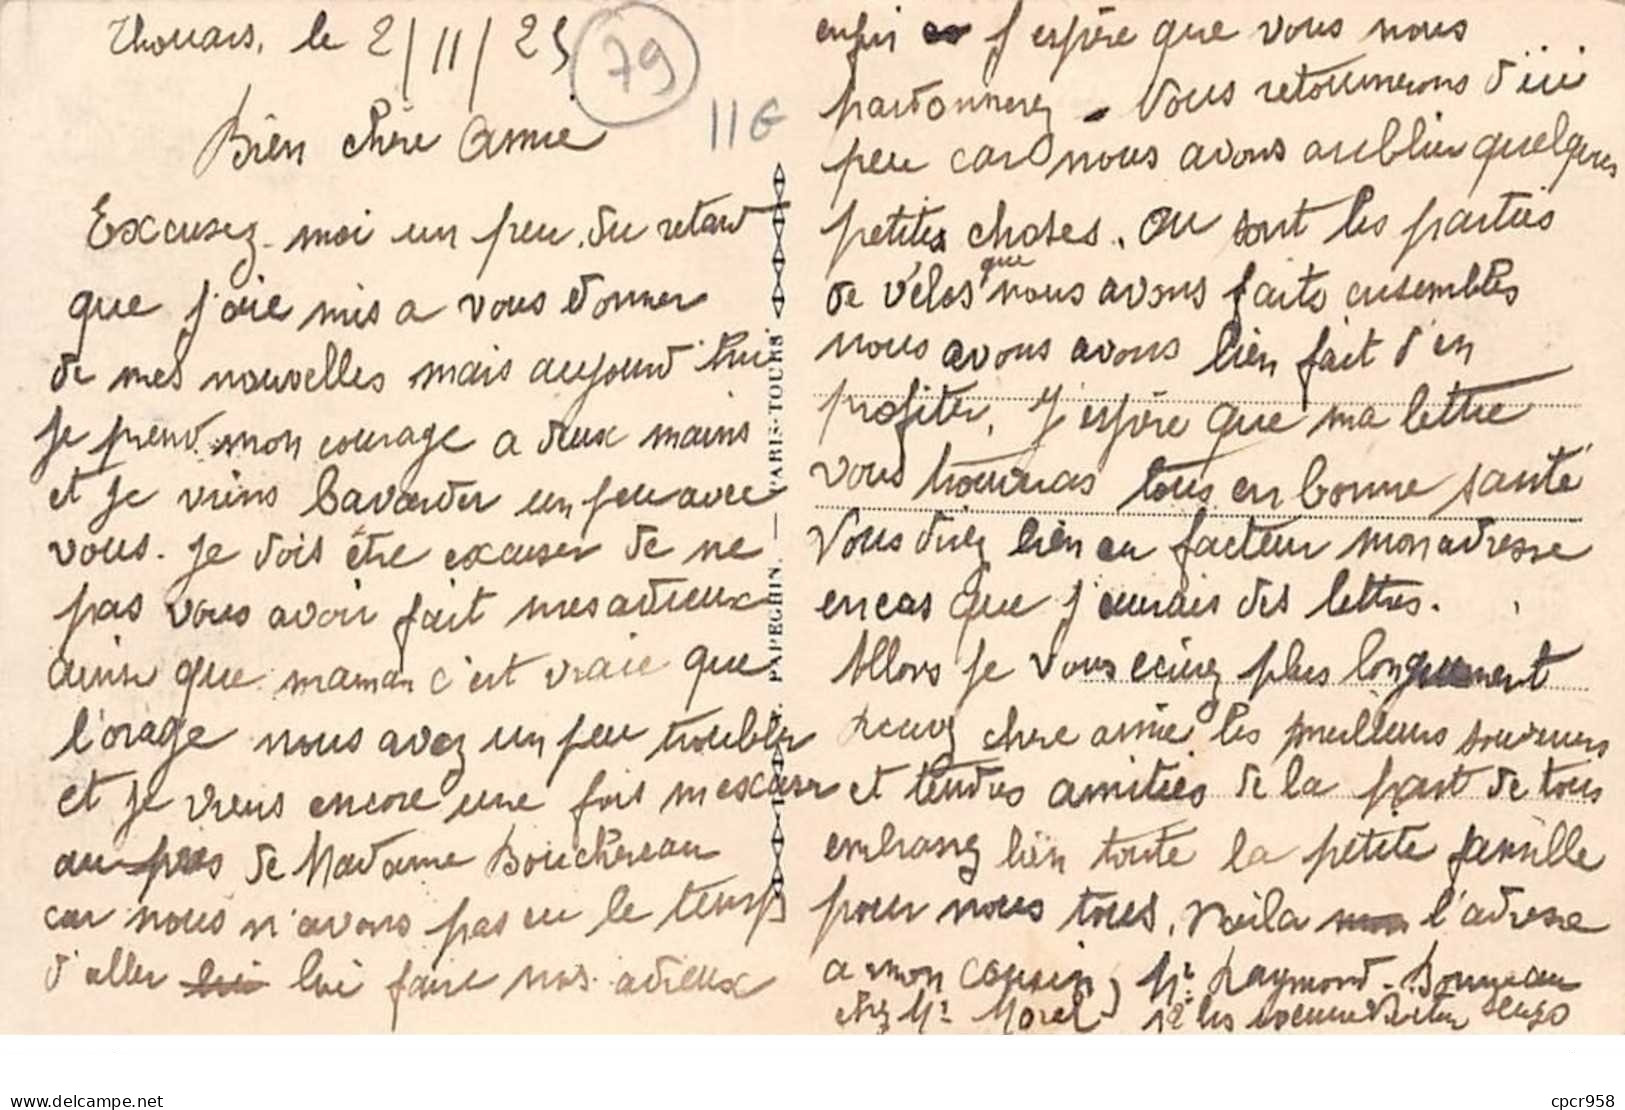 Thouars, le 2/11/25
79
11G
Bien chère Amie
Excusez-moi un peu du retard
que j'aie mis a vous donner
de mes nouvelles mais aujourd'hui
je prend mon courage a deux mains
et je viens bavarder un peu avec
vous. Je dois être excuser de ne
pas vous avoir fait mes adieux
ainsi que maman c'est vraie que
l'orage nous avez un peu troubler
et je viens encore une fois mexcuser
au près de Madame Bouchereau
car nous n'avons pas eu le temps
d'aller lui faire nos adieux
PAPEGHIN. — PARIS-TOURS.
enfin j'espère que vous nous
pardonnerez. Vous retournerons d'ici
peu car nous avons oublier quelques
petites choses. Ou sont les parties
de vélos que nous avons faits ensembles
nous avons avons bien fait d'en
profiter. J'espère que ma lettre
vous trouveras tous en bonne santé
Vous direz bien au facteur mon adresse
en cas que j'aurais des lettres.
Allors je vous écirez plus longuement
Recevez chere amie les meilleurs souvenirs
et tendres amitiés de la part de tous
embrassez bien toute la petite famille
pour nous tous. Voila l'adresse
a mon cousin, Mr Raymond
chez Mr Morel 12
cpcr958
delcampe.net